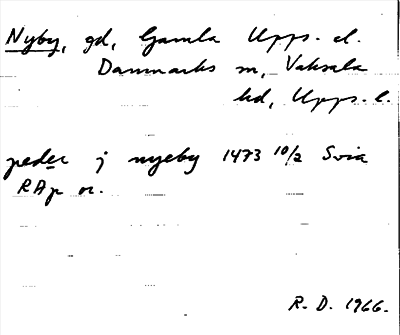 Nyby, gd, Gamla Upps. el.
Danmarks sn, Vaksala
hd, Upps. l.
peder j nyeby 1473 10/2 Svia
RAp or.
R. D. 1966.